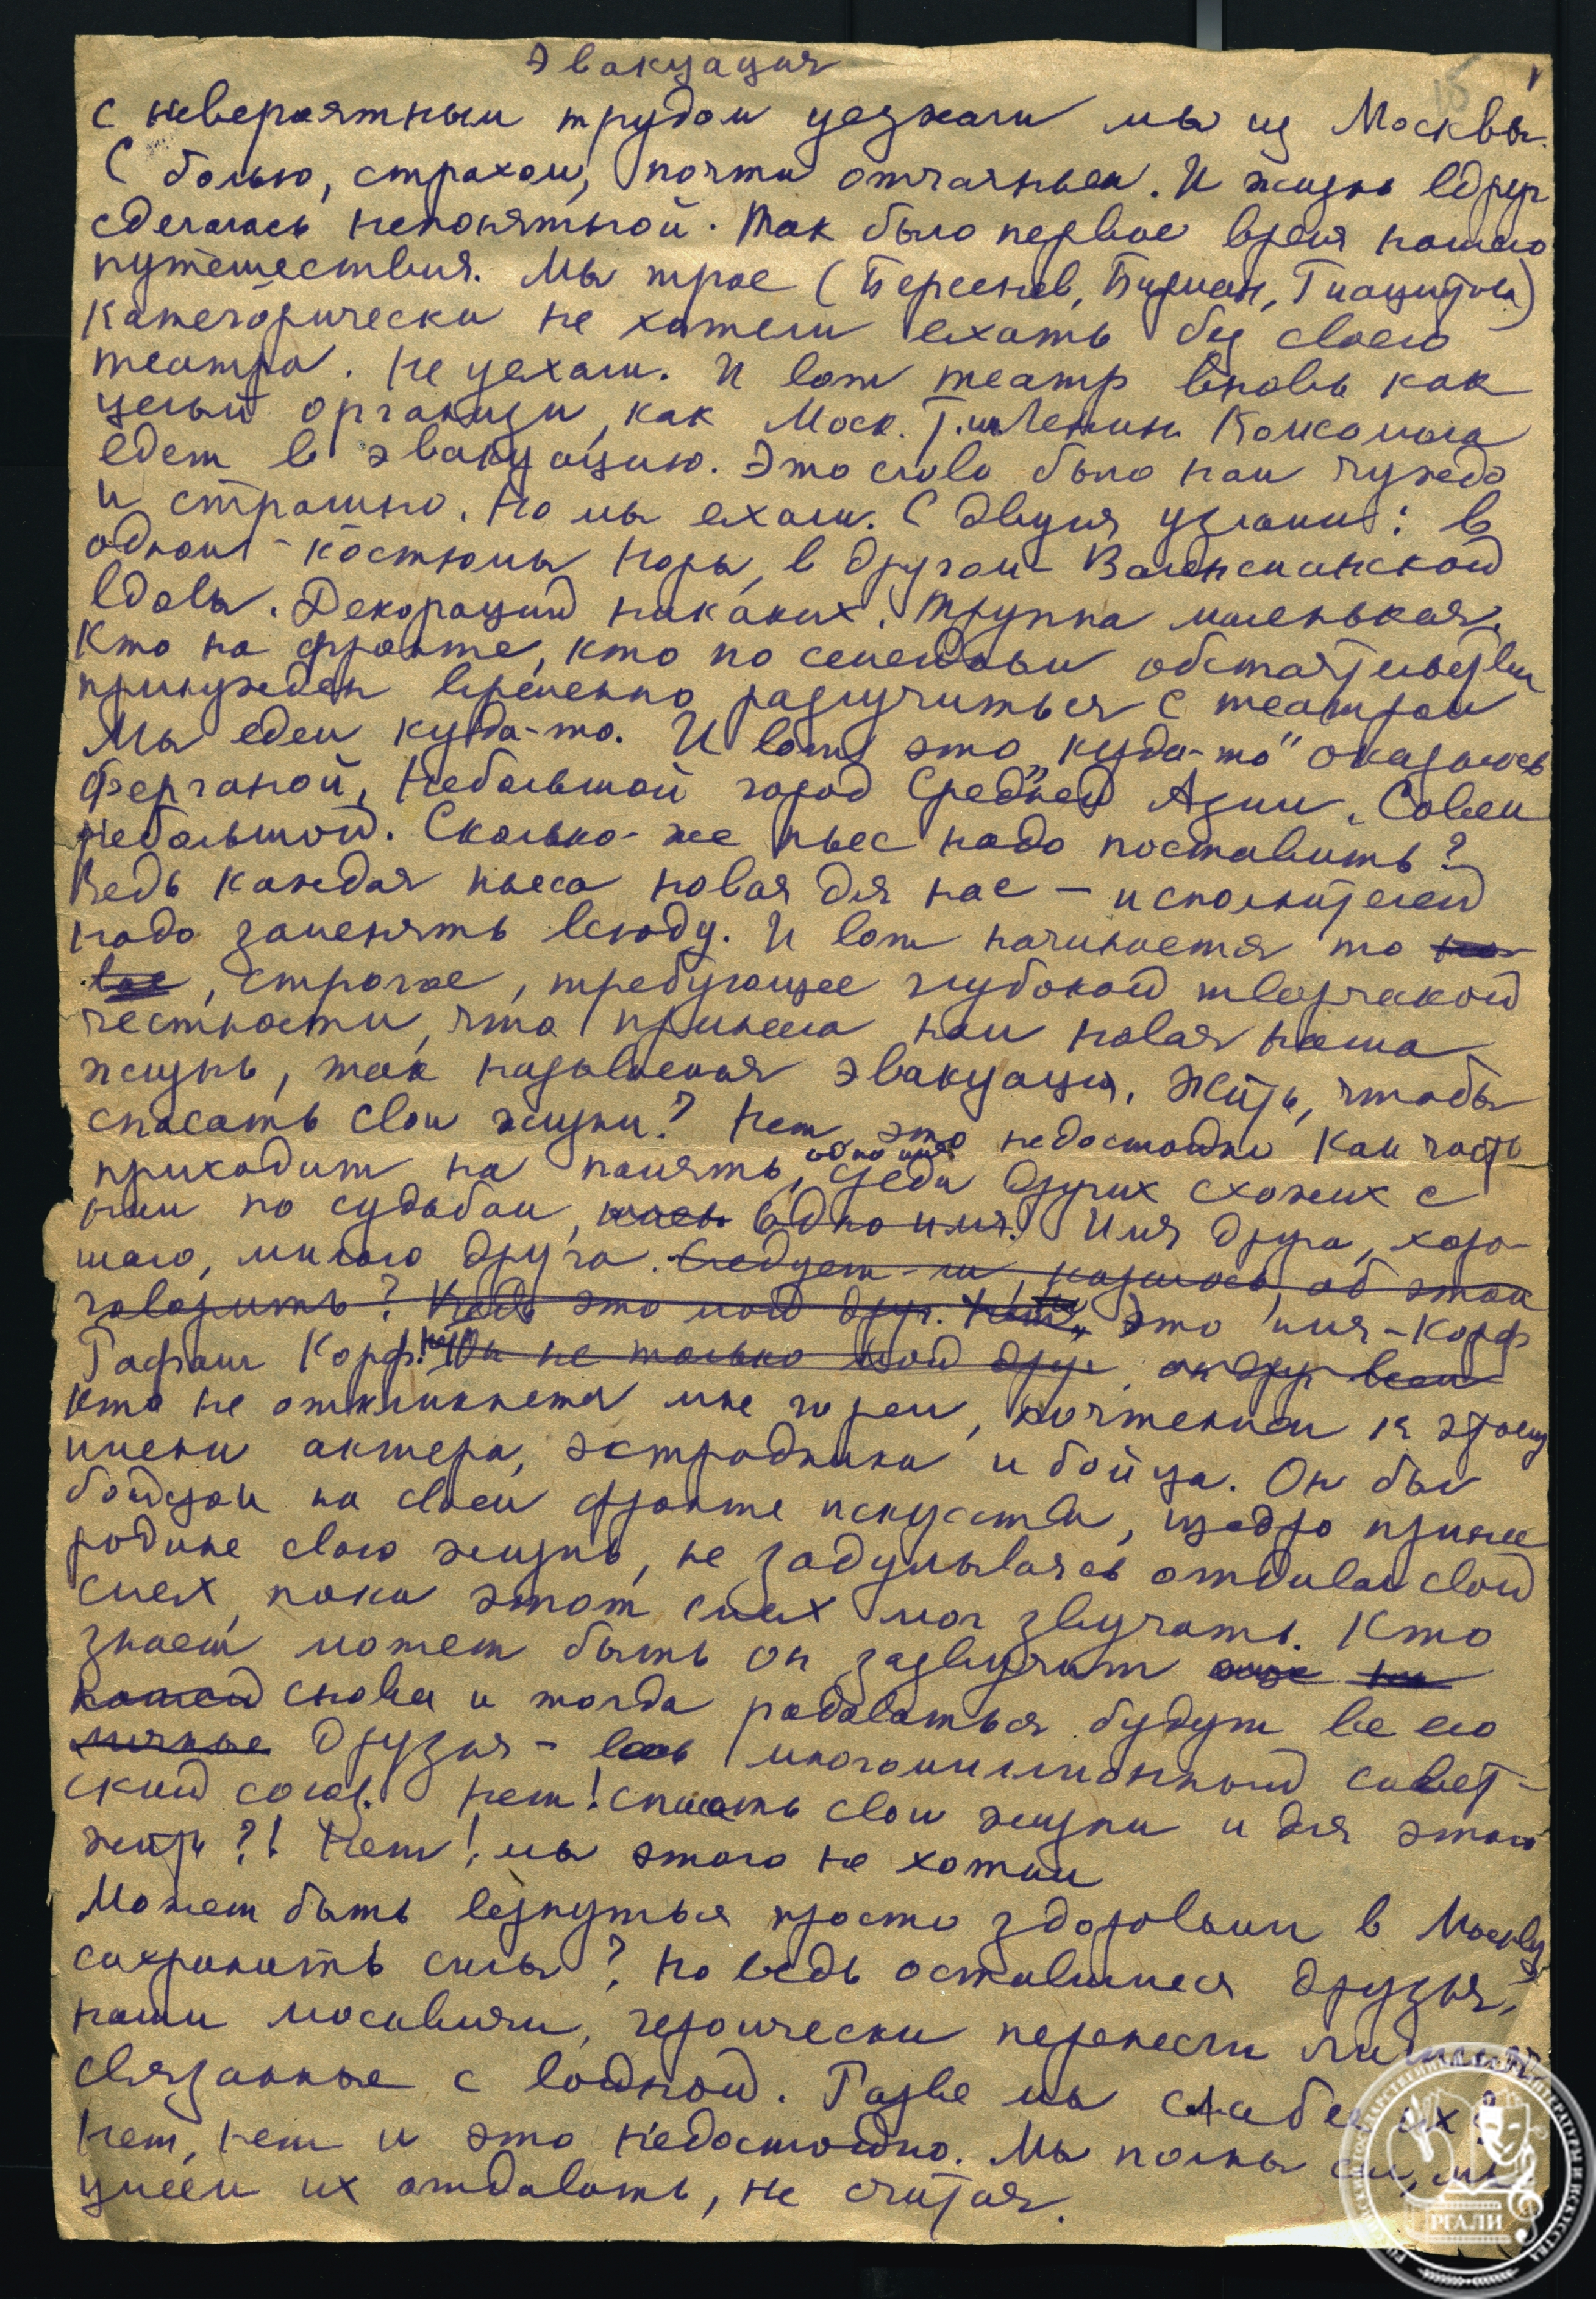 Эвакуация
15
С невероятным трудом уезжали мы из Москвы.
С болью, страхом, почти отчаяньем. И жизнь вдруг
сделалась непонятной. Так было первое время нашего
путешествия. Мы трое (Берсенев, Бирман, Гиацинтова)
категорически не хотели ехать без своего
театра. Не уехали. И вот театр вновь как
целый организм, как Моск. Т. им Ленин. Комсомола
едет в эвакуацию. Это слово было нам чуждо
и страшно. Но мы ехали. С двумя узлами: в
одном - костюмы Норы, в другом - Валенсианской
вдовы. Декораций никаких. Труппа маленькая.
Кто на фронте, кто по семейным обстоятельствам
принужден временно разлучиться с театром
Мы едем куда-то. И вот это „куда-то" оказалось
Ферганой, небольшой город Средней Азии. Совсем
небольшой. Сколько-же пьес надо поставить?
Ведь каждая пьеса новая для нас - исполнителей
надо заменять всюду. И вот начинается то но-
вое, строгое, требующее глубокой творческой
честности, что принесла нам новая наша
жизнь, так называемая эвакуация. Жить, чтобы
спасать свои жизни? Нет, это недостойно. Нам часто
приходит на память, одно имя среди других схожих с
ним по судьбам, одно имя. Имя друга, хоро-
шего, милого друга. Следует-ли, казалось, об этом
говорить? Ведь это мой друг. Это имя - Корф
Рафаил Корф! не только мой друг, он друг всем
Кто не откликнется мне горем, почтением к этому
имени актера, эстрадника и бойца. Он был
бойцом на своем фронте искусства, щедро принес
родине свою жизнь, не задумываясь отдавал свой
смех, пока этот смех мог звучать. Кто
знает может быть он зазвучит
снова и тогда радоваться будут все его
личные друзья - весь многомиллионный совет-
ский союз. Нет! Спасать свои жизни и для этого
жить?! Нет! мы этого не хотим
Может быть вернуться просто здоровыми в Москву
сохранить силы? Но ведь оставшиеся друзья,
наши москвичи, героически перенесли
связанные с войной. Разве мы слабее их?
Нет, нет и это недостойно. Мы полны сил, мы
умеем их отдавать, не считая.
РГАЛИ